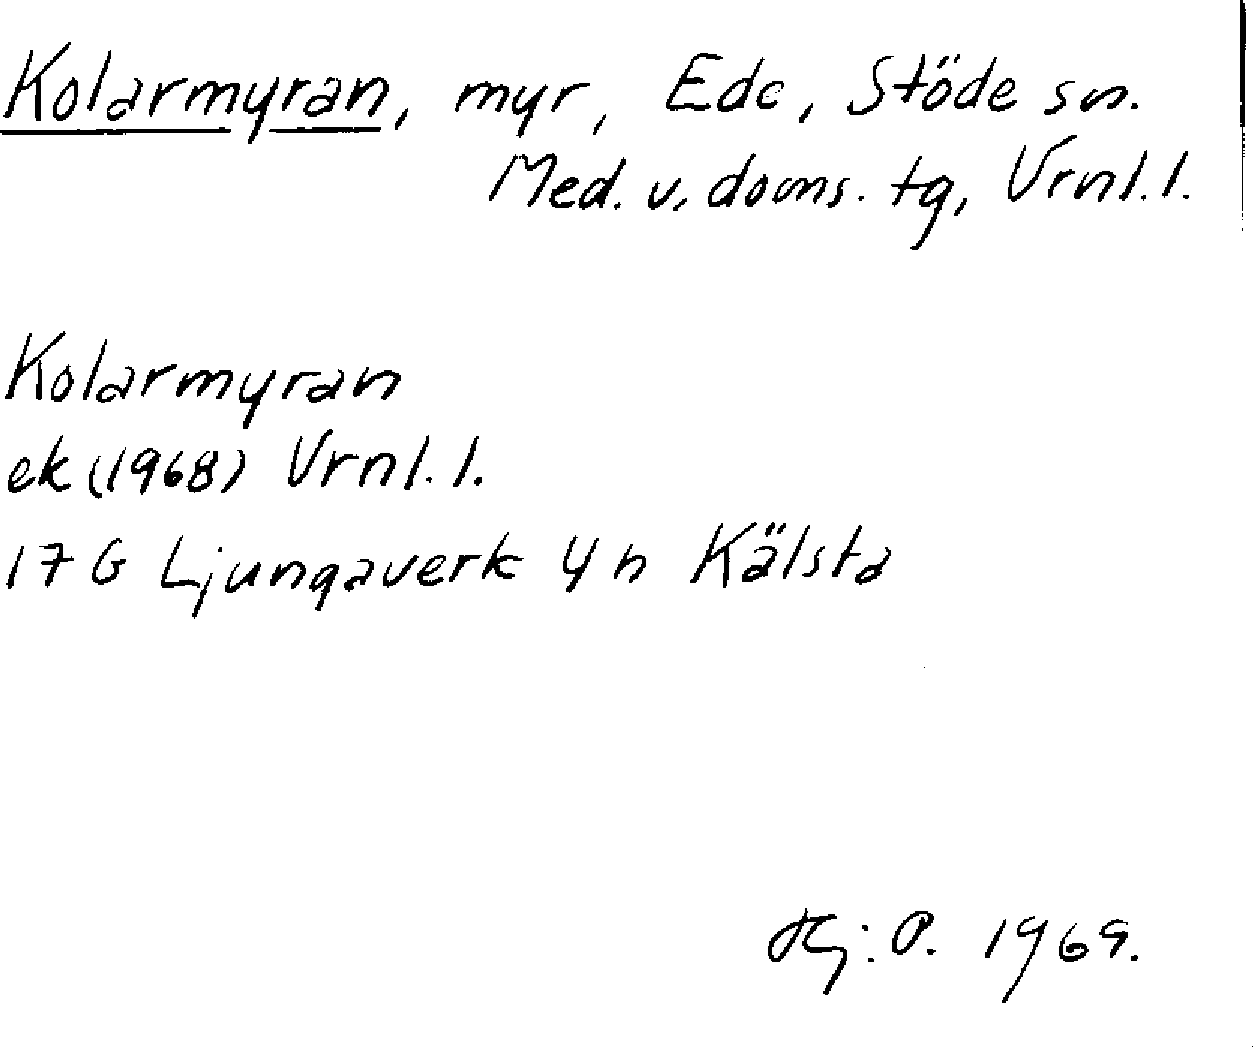 Kolarmyran, myr, Ede, Stöde sn.
Med. v. doms. tg, Vrnl. l.
Kolarmyran
ek (1968) Vrnl. l.
17 G Ljungaverk 4 h Kälsta
P. 1969.